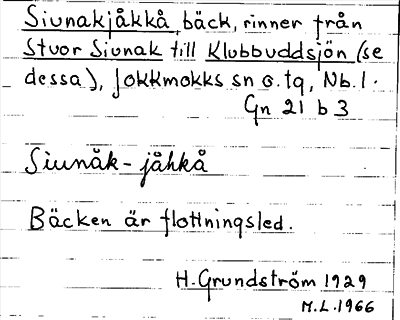 Siunakjåkkå, bäck, rinner från
Stuor Siunak till Klubbuddsjön (se
dessa), Jokkmokks sn o. tg, Nb. l.
Gn 21 b 3
Siunăk-jåhkå
Bäcken är flottningsled.
H. Grundström 1929
M.L. 1966